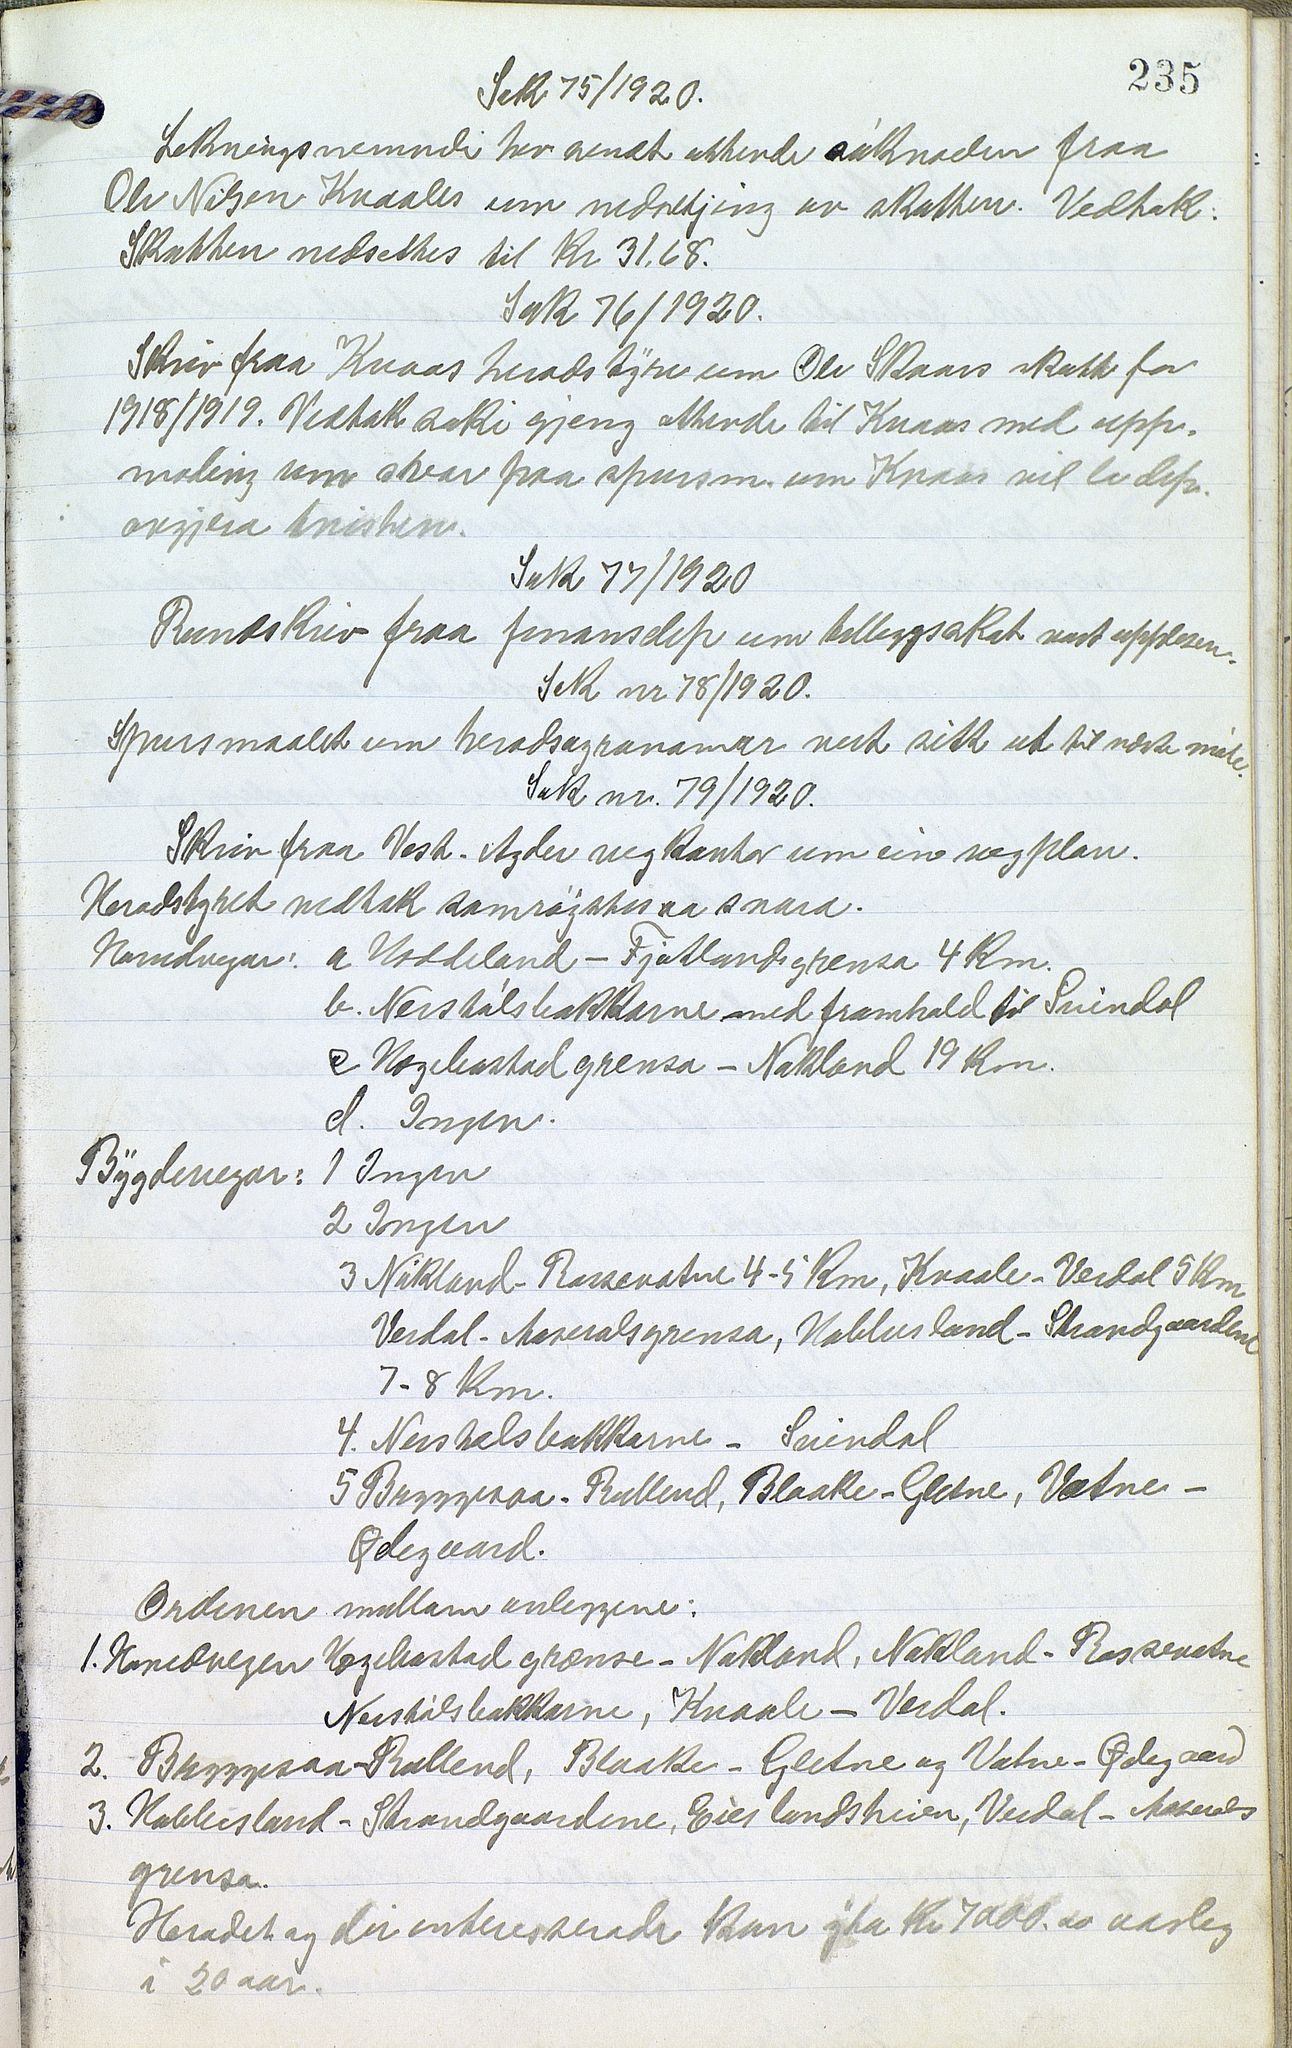 235
Sak 75/1920.
Likningsnemndi hev sendt attende søknaden fraa
Ole Nilsen Kvaales um nedsetjing av skatten. Vedtak:
Skatten nedsettes til kr 31,68.
Sak 76/1920.
Skriv fraa Kvaas heradstyre um Ole Skaars skatt for
1918/1919. Vedtak saki gjeng attende til Kvaas med upp-
moding um svar paa spursm. um Kvaas vil la dep.
avgjera tvisten.
Sak 77/1920
Rundskriv fraa finansdep um tilleggsskat vart upplesen.
Sak nr 78/1920.
Spursmaalet um heradsagronomar vert sett ut til næste møte.
Sak nr. 79/1920.
Skriv fraa Vest-Agder vegkontor um ein vegplan.
Heradstyret vedtok samrøystes aa svara.
Hovudvegar: a Hoddeland - Fjotlandsgrensa 4 km.
b. Nershølsbakkarne med framhald til Svindal
c Hægebostad grensa - Nakland 19 km.
d. Ingen.
Bygdevegar: 1 Ingen
2 Ingen
3 Nakland - Rossevatne 4-5 km, Kvaale - Verdal 5 km
Verdal - Aaseralsgrensa, Hobbesland - Strandgaardene
7-8 km.
4. Nershølsbakkarne - Svindal
5 Bryggesaa - Rullend, Blaake - Gletne, Vatne -
Ødegaard.
Ordenen mellom anleggene:
1. Hovedvegen Hægebostad grense - Nakland, Nakland - Rossevatne
Nershølsbakkarne, Kvaale - Verdal.
2. Bryggesaa - Rullend, Blaake - Gletne og Vatne - Ødegaard
3. Hobbesland - Strandgaardene, Eieslandsheien, Verdal - Aaserals
grensa.
Heradet og dei interesserade kan yta kr 7000.00 aarleg
i 20 aar.